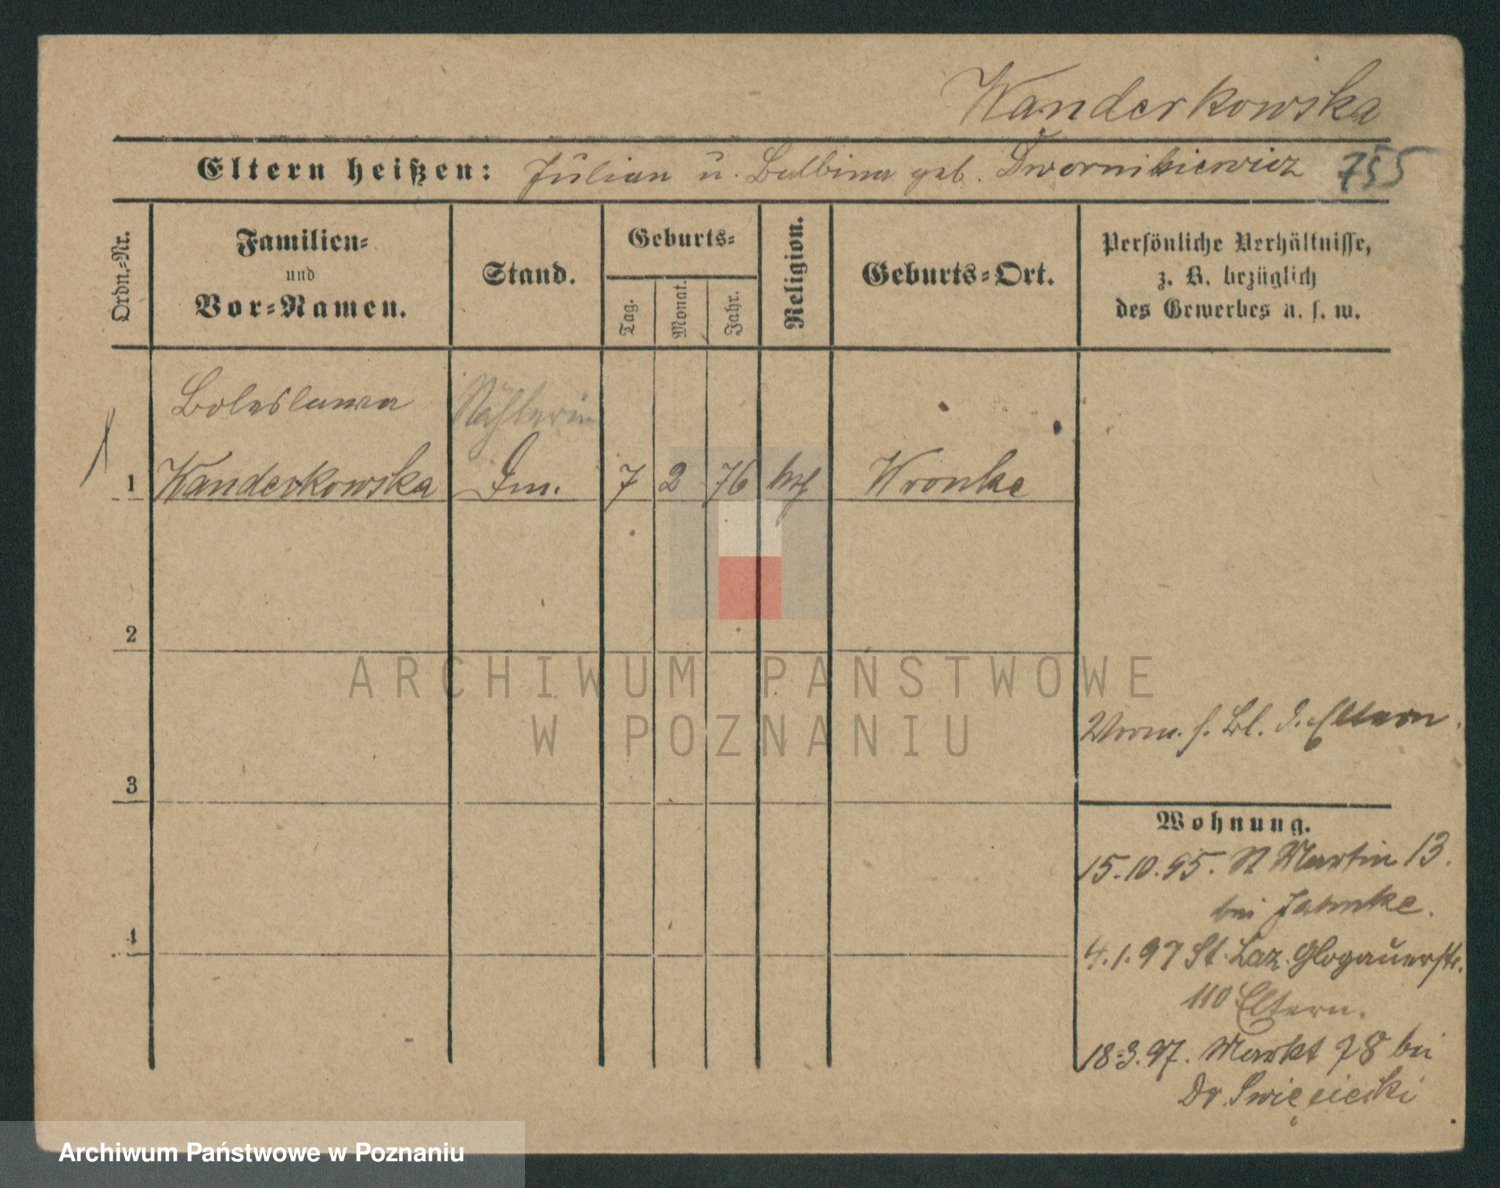 Wanderkowska
Eltern heißen: Julian u. Balbina geb. Dwornikiewicz 755
Ordn.-Nr.
Familien-
und
Vor-Namen.
Stand.
Geburts-
Tag.
Monat.
Jahr.
Religion.
Geburts-Ort.
Persönliche Verhältnisse,
z. B. bezüglich
des Gewerbes u. s. w.
Boleslawa Nähterin
1 Wanderkowska 7 2 76 Wronke
2
ARCHIWUM PAŃSTWOWE
W POZNANIU
Eltern.
3
Wohnung.
15.10.95. St Martin 13.
bei Jahnke.
4
4.1.97 St. Laz. Glogauerstr.
110 Eltern.
18.3.97. Markt 78 bei
Dr. Święcicki
Archiwum Państwowe w Poznaniu